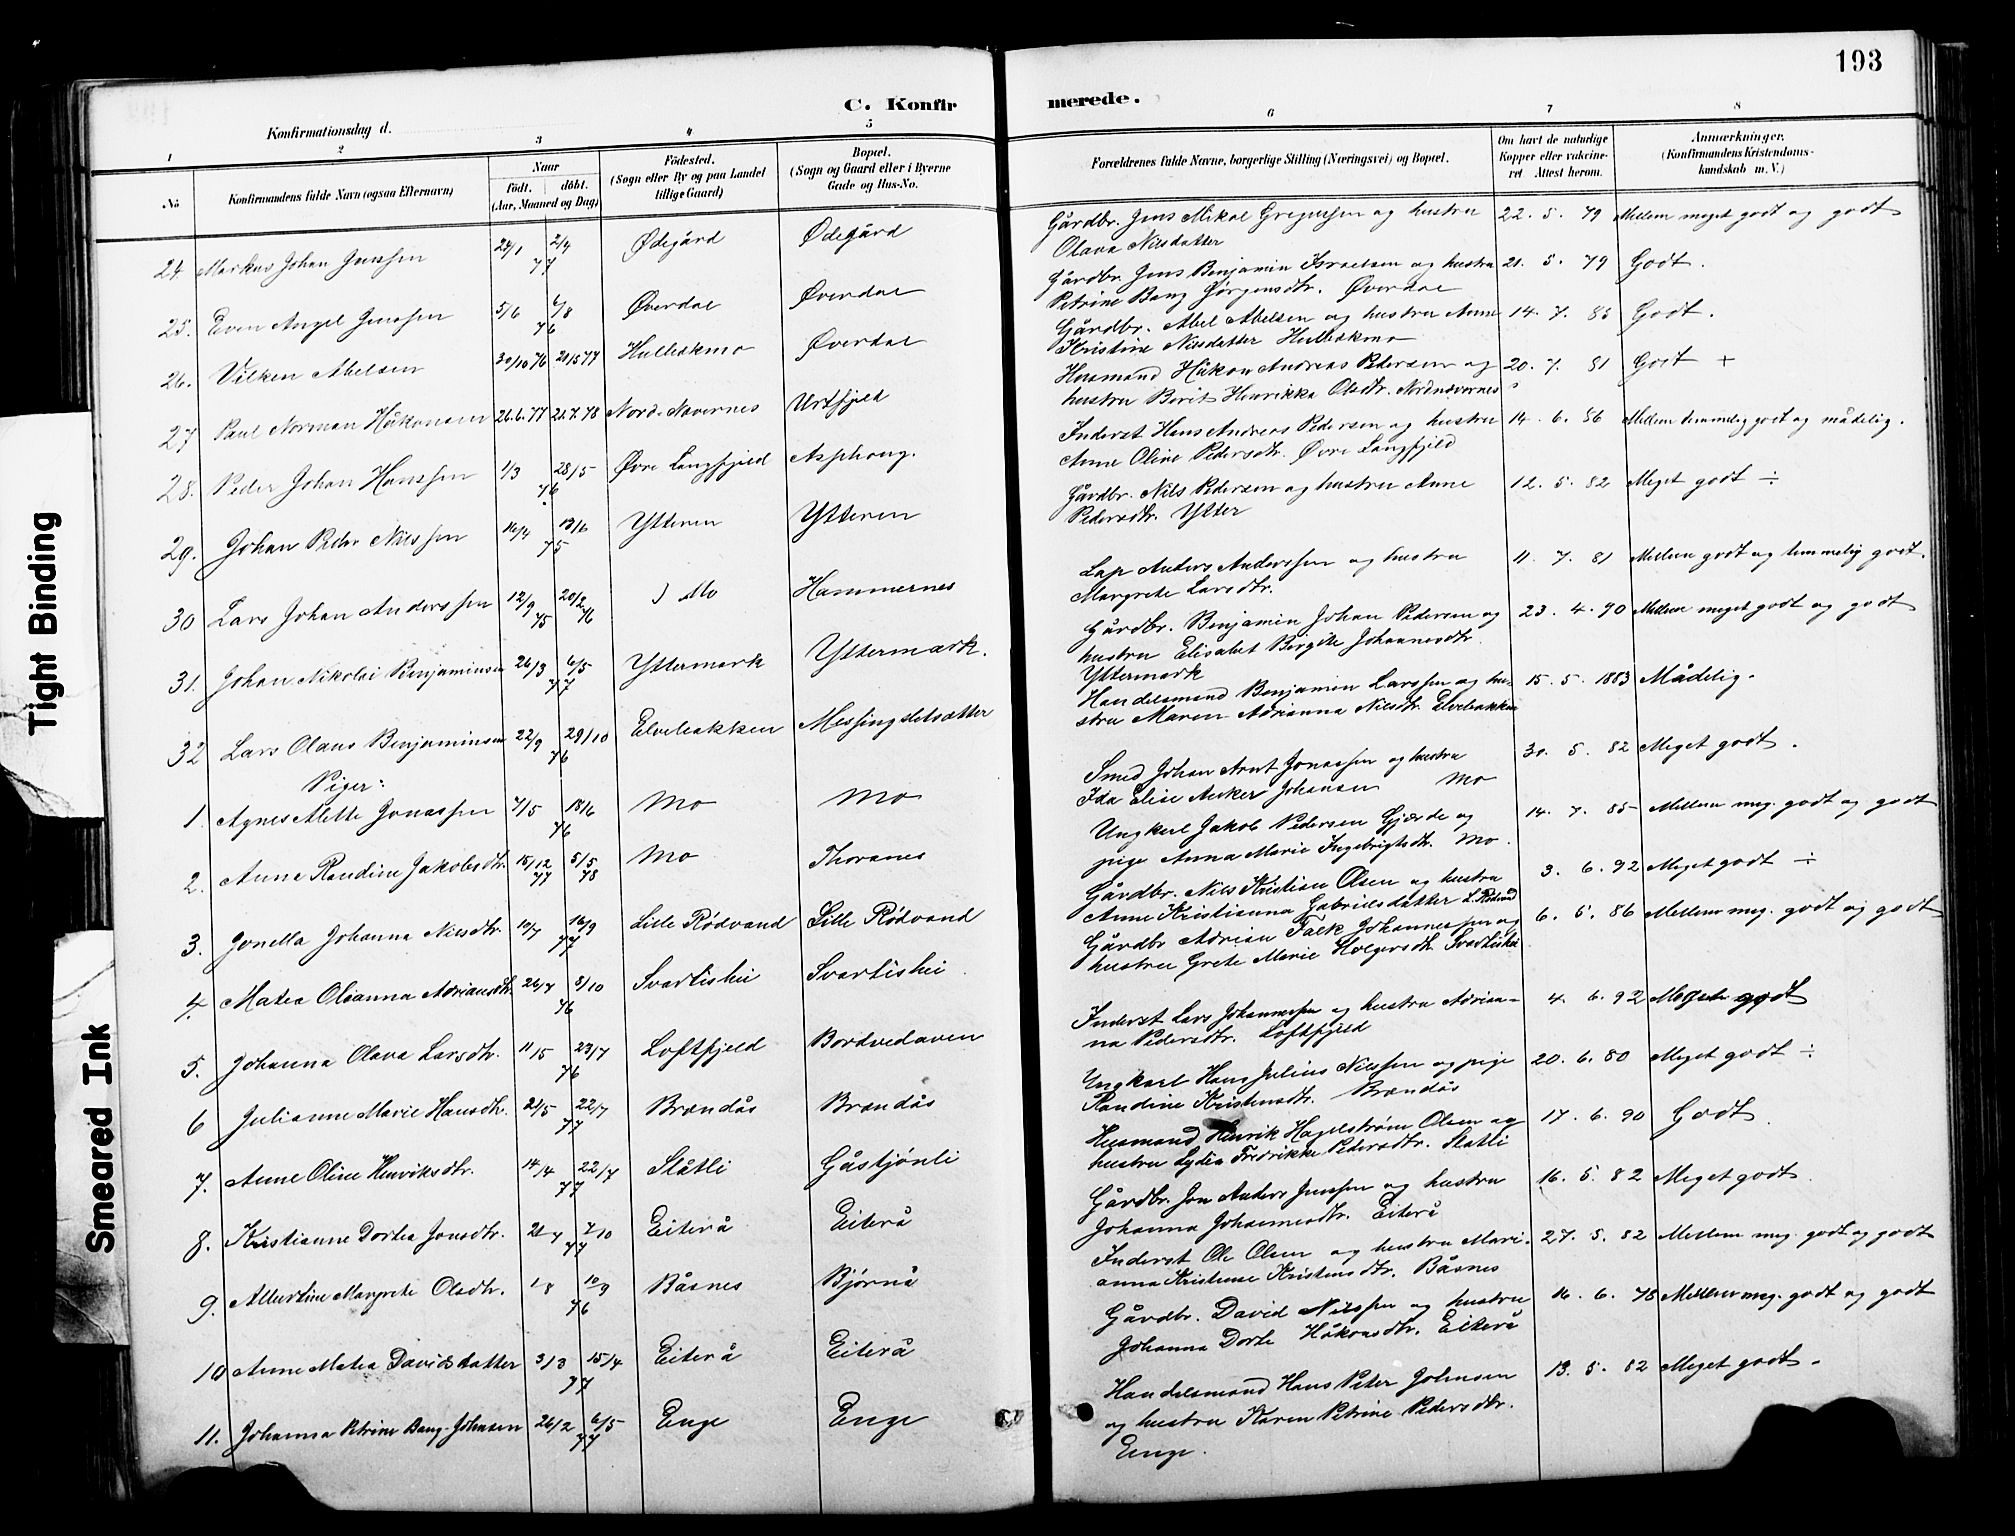 193
C. Konfir merede.
Konfirmationsdag d.
1 2 3 4 5 6 7 8
No
Konfirmandens fulde Navn (ogsaa Efternavn)
Naar
födt. döbt.
(Aar, Maaned og Dag)
Födested.
(Sogn eller By og paa Landet
tillige Gaard)
Bopæl.
(Sogn og Gaard eller i Byerne
Gade og Hus-No.
Forældrenes fulde Navne, borgerlige Stilling (Næringsvei) og Bopæl.
Om havt de naturlige
Kopper eller vakcine-
ret Attest herom.
Anmærkninger.
(Konfirmandens Kristendoms-
kundskab m. V.)
24. Markus Johan Jenssen 24/1 2/4 77 Ødegård Ødegård Gårdbr. Jens Mikal Gregussen og hustru 22. 5. 79 Mellem meget godt og godt
Olava Nilsdatter
25. Even Angel Jenssen 5/6 6/8 76 Øverdal Øverdal Gårdbr. Jens Benjamin Israelsen og hustru 21. 5. 79 Godt.
Petrine Bang Jørgensdtr. Øverdal
26. Vilken Abelsen 30/10 76 20/5 77 Hulleåkmo Øverdal Gårdbr. Abel Abelsen og hustru Anne 14. 7. 85 Godt.
Kristine Nilsdatter Hulleåkmo
27 Paul Norman Håkonsen 26.6.77 21.7.78 Nord-Nævernes Urtfjeld Husmand Håkon Andreas Pedersen og 20. 7. 81 Godt +
hustru Berit Henrikka Olsdtr. Nordnævernes
28. Peder Johan Hanssen 1/3 28/5 76 Øvre Langfjeld Asphaug. Inderst Hans Andreas Pedersen og hustru 14. 6. 86 Mellem temmelig godt og mådelig.
Anne Oline Pedersdtr. Øvre Langfjeld
29. Johan Peder Nilssen 14/4 13/6 75 Ytteren Ytteren Gårdbr. Nils Pedersen og hustru Anne 12. 5. 82 Meget godt ÷
Pedersdtr. Ytter
30 Lars Johan Anderssen 12/9 75 20/2 76 Mo Hammernes Lap Anders Anderssen og hustru 11. 7. 81 Mellem godt og temmelig godt.
Margrete Larsdtr.
31. Johan Nikolai Benjaminsen 26/3 6/5 77 Yttermark Yttermark. Gårdbr. Benjamin Johan Pedersen og 23. 4. 90 Mellem meget godt og godt
hustru Elisabet Birgitte Johannesdtr.
Yttermark
32 Lars Olaus Benjaminsen 22/9 29/10 76 Elvebakken Messingsletsætter Handelsmand Benjamin Larssen og hu- 15. 5. 1883 Mådelig.
stru Maren Adrianna Nilsdtr. Elvebakken
Piger:
1. Agnes Alette Jonassen 7/5 18/6 76 Mo Mo Smed Johan Arnt Jonassen og hustru 30. 5. 82 Meget godt.
Ida Elise Anker Johansen Mo
2. Anne Randine Jakobsdtr. 15/12 77 5/5 78 Mo Thoranes Ungkerl Jakob Pedersen Gjærde og 14. 7. 85 Mellem meg. godt og godt
pige Anna Marie Ingebrigtsdtr. Mo.
3. Jonella Johanna Nilsdtr. 10/7 16/9 77 Lille Rødvand Lille Rødvand Gårdbr. Nils Kristian Olsen og hustru 3. 6. 92 Meget godt ÷
Anne Kristianna Gabrielsdatter L. Rødvand
4. Matea Olianna Adriansdtr. 26/7 8/10 76 Svartishei Svartishei Gårdbr Adrian Falk Johannessen og 6. 5. 86 Mellem meg. godt og godt
hustru Grete Marie Holgersdtr. Svartishei
5. Johanna Olava Larsdtr. 11/5 23/7 76 Loftfjeld Bordvedaven Inderst Lars Johannessen og hustru Adrian- 4. 6. 92 Meget godt
na Pedersdtr. Loftfjeld
6 Julianne Marie Hansdtr. 24/5 22/7 77 Brændås Brændås Ungkarl Hans Julius Nilssen og pige 20. 6. 80 Meget godt ÷
Randine Kristensdtr. Brændås
7. Anne Oline Henriksdtr. 14/4 22/7 77 Slåtli Gåstjønli Husmand Henrik Hagelstrøm Olsen og 17. 6. 90 Godt
hustru Lydia Fredrikke Pedersdtr. Slåtli
8. Kristianne Dortea Jonsdtr. 21/7 7/10 77 Eiterå Eiterå Gårdbr. Jon Anders Jenssen og hustru 16. 5. 82 Meget godt.
Johanna Johannesdtr. Eiterå
9. Albertine Margrete Olsdtr. 1/8 10/9 76 Båsnes Bjørnå Inderst Ole Olsen og hustru Mari- 27. 5. 82 Mellem meg. godt og godt
anna Kristense Kristensdtr. Båsnes
10 Anne Matea Davidsdatter 3/3 15/4 77 Eiterå Eiterå Gårdbr. David Nilssen og hustru 16. 6. 78 Mellem meg. godt og godt
Johanna Dorte Håkonsdtr. Eiterå
11. Johanna Petrine Bang-Johnsen 26/2 6/5 77 Enge Enge Handelsmand Hans Peter Johnsen 13. 5. 82 Meget godt.
og hustru Karen Petrine Pedersdtr.
Enge.
Tight Binding
Smeared Ink